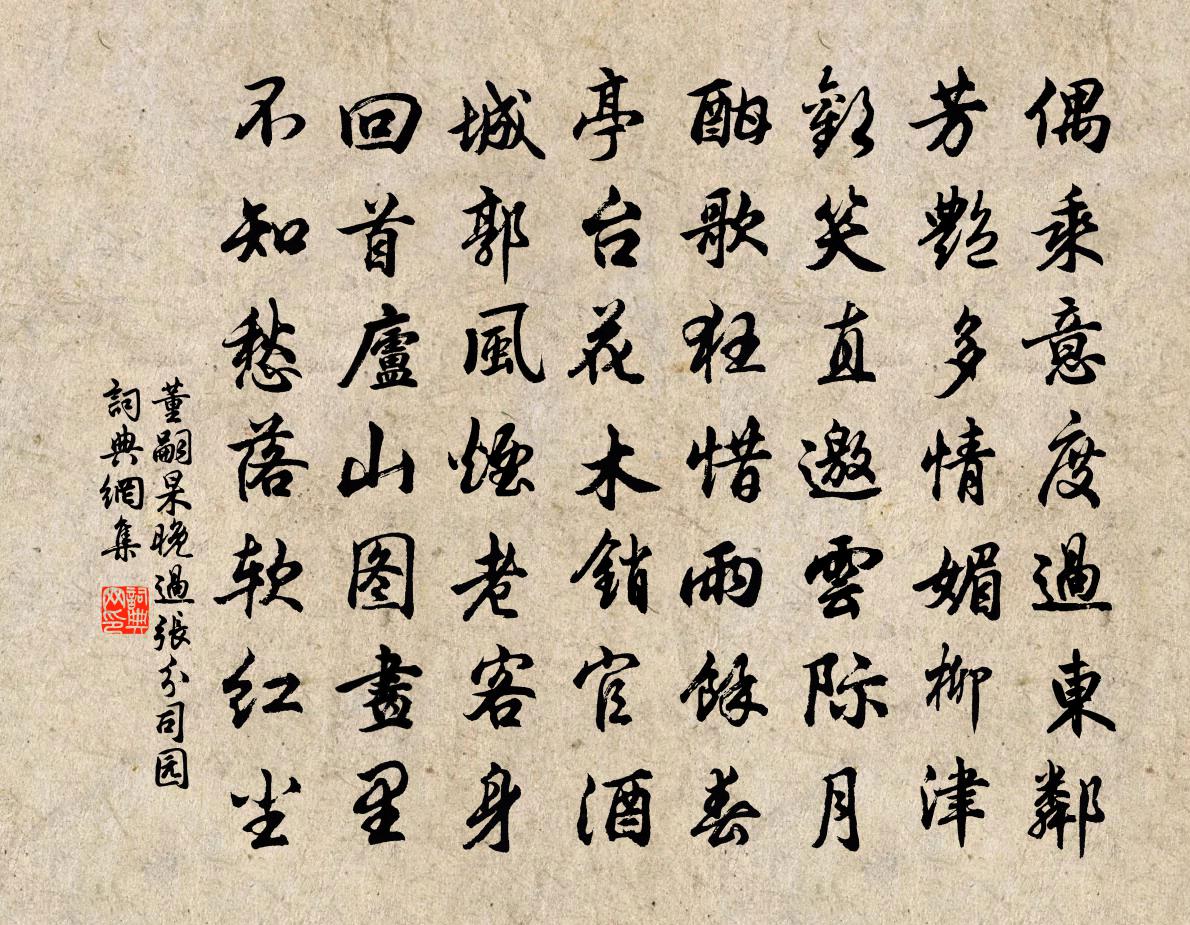 偶乘意度過東鄰
芳艷多情媚柳津
歡笑直邀雲際月
酣歌狂惜雨餘春
亭台花木銷官酒
城郭風煙老客身
回首廬山图畫里
不知愁落软红尘
董嗣杲晚過張分司园
詞典網集
詞典网印